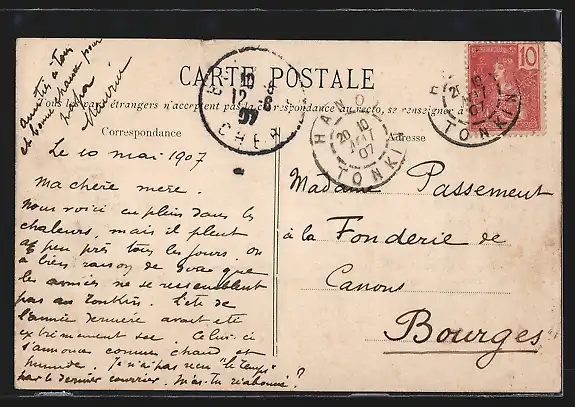 amitiés à tous
et bonne chance pour
papa
Maurice
CARTE POSTALE
Tous les pays étrangers n'acceptent pas la correspondance au recto, se renseigner à
Correspondance
Adresse
10
12 8
07
CHER
HANOI
20 10
07
TONKIN
10
20
07
TONKIN
Le 10 mai 1907
Ma chère mère.
Nous voici en plein dans les
chaleurs, mais il pleut
à peu près tous les jours. On
a bien raison de dire que
les années ne se ressemblent
pas au Tonkin. L'été de
l'année dernière avait été
extrêmement sec. Celui-ci
s'annonce comme chaud et
humide. Je n'ai pas reçu "le temps"
par le dernier courrier. M'as-tu réabonné ?
Madame Passement
à la Fonderie de
Canons
Bourges